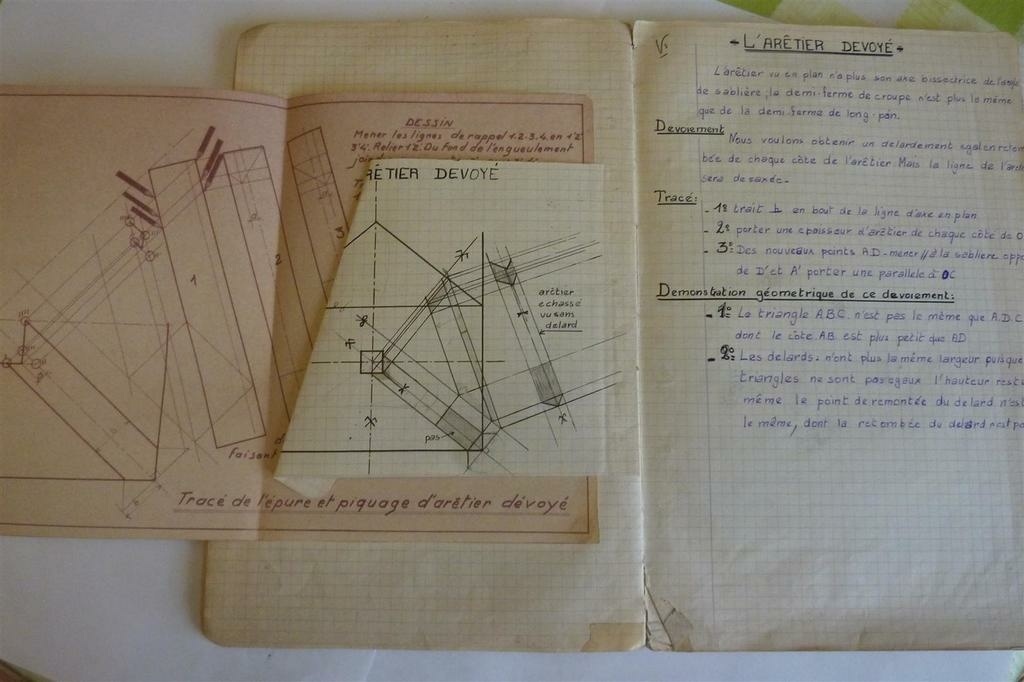 DESSIN
Mener les lignes de rappel 1.2.3.4. en 1'2'
3'4'. Relier 1'2'. Du fond de l'engueulement
1
2
3
Faisant
Tracé de l'épure et piquage d'arêtier dévoyé
ÊTIER DEVOYÉ
arêtier
echassé
vu sans
delard
pas
- L'ARÊTIER DEVOYÉ -
L'arêtier vu en plan n'a plus son axe bissectrice de l'angle
de sablière, la demi-ferme de croupe n'est plus la même
que de la demi-ferme de long-pan.
Devoiement
Nous voulons obtenir un delardement egalen retom
bée de chaque côte de l'arêtier. Mais la ligne de l'arête
sera desaxée.
Tracé:
- 1º trait ⊥ en bout de la ligne d'axe en plan
- 2º porter une epaisseur d'arêtier de chaque côte de O
- 3º Des nouveaux points AD-mener // à la sabliere oppo
de D' et A' porter une parallele à OC
Demonstration géometrique de ce devoiement:
- 1º Le triangle A.B.C. n'est pas le même que A.D.C
dont le côte AB est plus petit que AD
- 2º Les delards: n'ont plus la même largeur puisque
triangles ne sont pas egaux l'hauteur reste
même le point de remontée du delard n'est
le même, dont la retombée du delard n'est pa